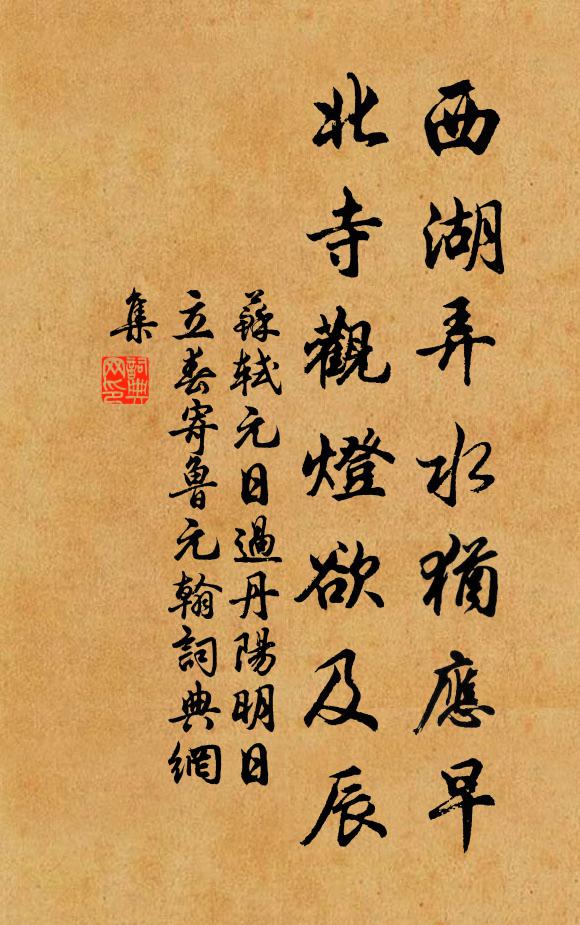 西湖弄水猶應早
北寺觀燈欲及辰
蘇軾元日過丹陽明日
立春寄魯元翰詞典網
集
詞典
网印